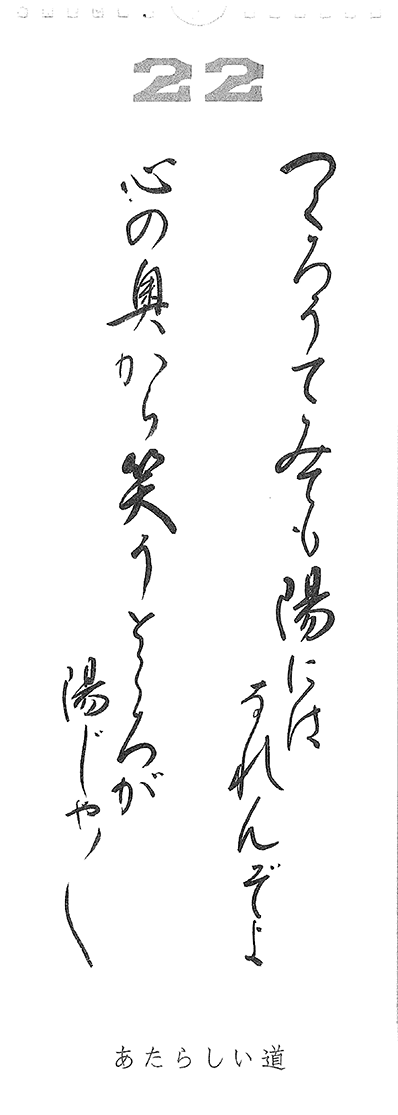 22
つくろうてみても陽には
なれんぞよ
心の奥から笑うところが
陽じゃ
あたらしい道